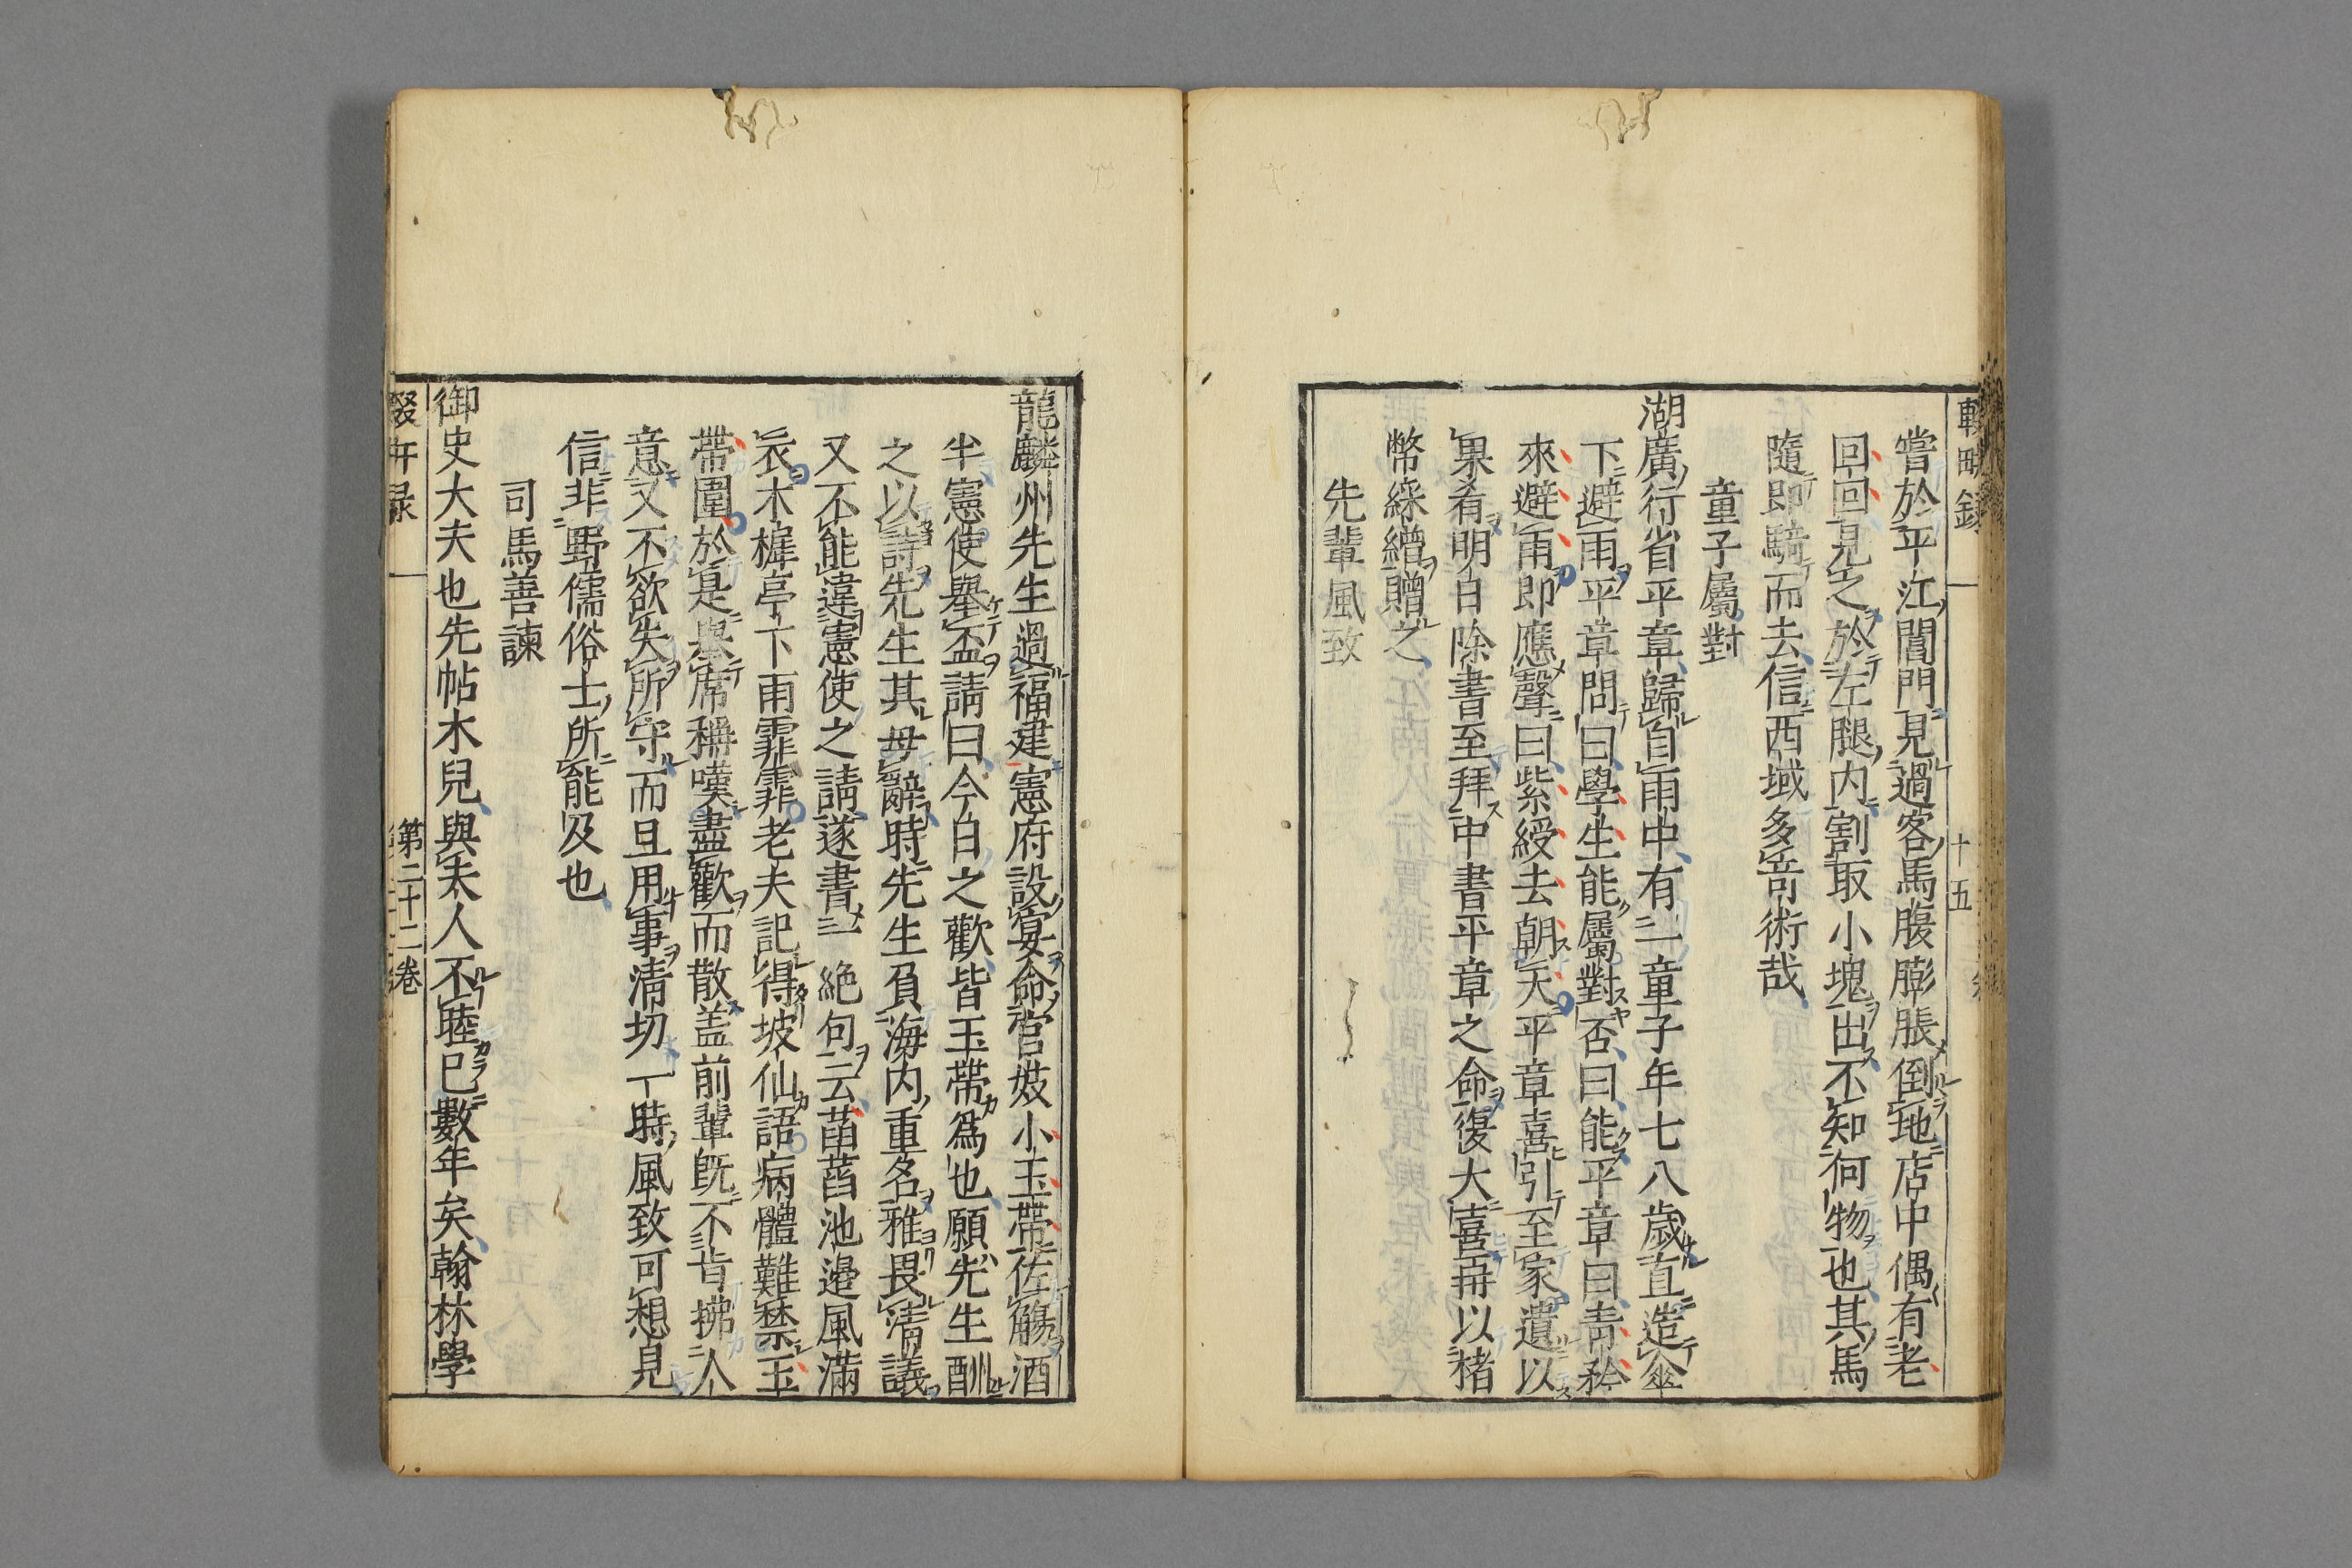 輟畊録
十五
嘗於平江閶門見過客馬腹膨脹倒地店中偶有老
回回見之於左腿内割取小塊出不知何物也其馬
隨即騎而去信西域多竒術哉
童子屬對
湖廣行省平章歸自雨中有一童子年七八歳直造傘
下避雨平章問曰學生能屬對否曰能平章曰青衿
來避雨即應聲曰紫綬去朝天平章喜引至家遺以
果肴明日除書至拜中書平章之命復大喜再以楮
幣綵繒贈之
先輩風致
龍麟州先生過福建憲府設宴命官妓小玉帶佐觴酒
半憲使舉盃請曰今日之歡皆玉帶爲也願先生酬
之以詩先生其毋辭時先生負海内重名雅畏清議
又不能違憲使之請遂書一絶句云菡萏池邉風滿
衣木樨亭下雨霏霏老夫記得坡仙語病體難禁玉
帶圍於是舉席稱嘆盡歡而散盖前輩既不肯拂人
意又不欲失所守而且用事清切一時風致可想見
信非野儒俗士所能及也
司馬善諫
御史大夫也先帖木兒與夫人不睦已數年矣翰林學
輟畊録
第二十二巻